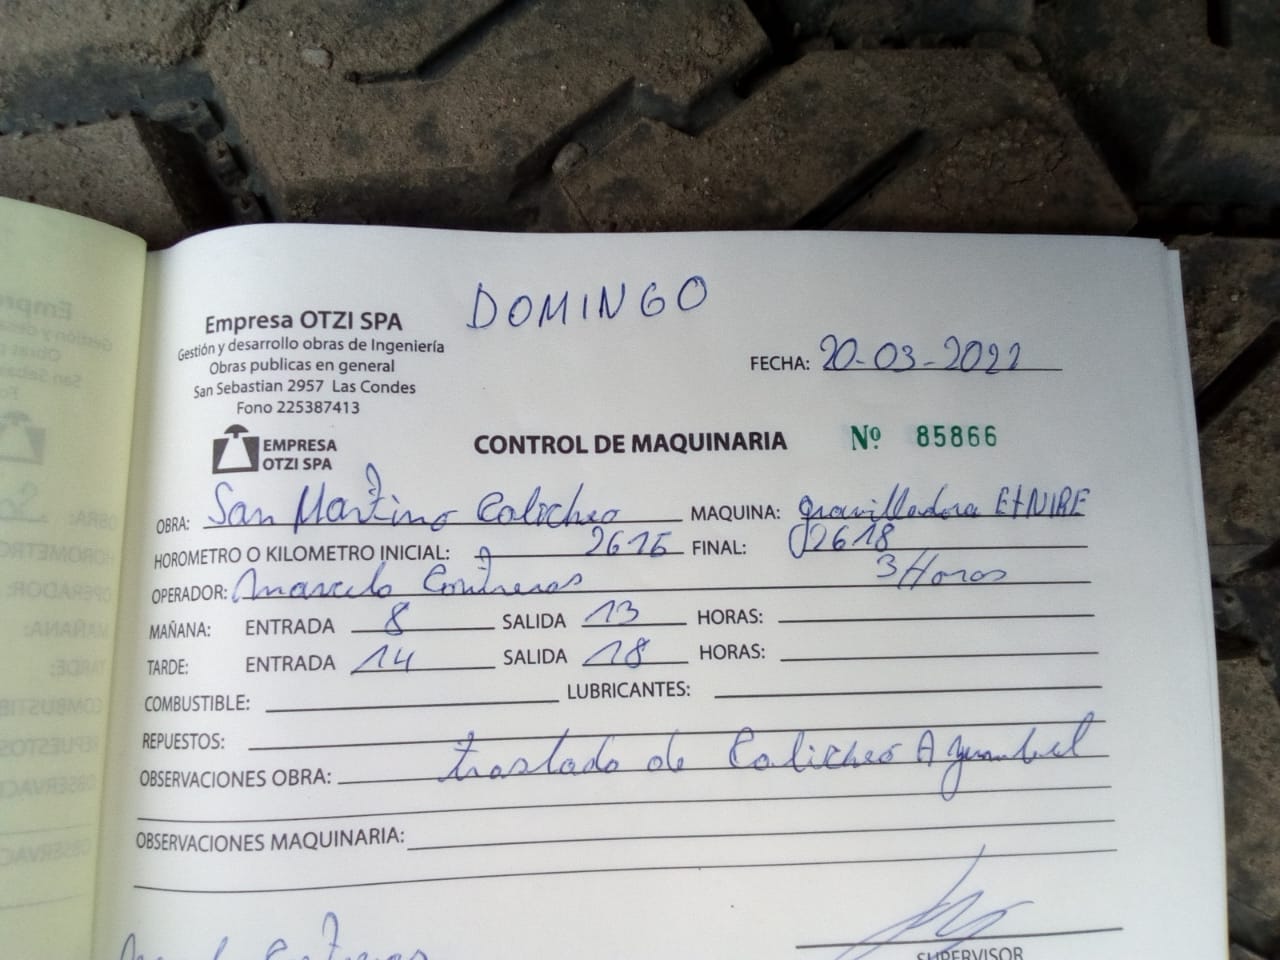 DOMINGO
Empresa OTZI SPA
Gestión y desarrollo obras de Ingeniería
Obras publicas en general
San Sebastian 2957 Las Condes
Fono 225387413
FECHA: 20-03-2022
EMPRESA
OTZI SPA
CONTROL DE MAQUINARIA Nº 85866
OBRA: San Martino Calicheo MAQUINA: gravilladora EtNIRE
HOROMETRO O KILOMETRO INICIAL: 2615 FINAL: 02618
3 Horas
OPERADOR: Marcelo Contreras
MAÑANA: ENTRADA 8 SALIDA 13 HORAS:
TARDE: ENTRADA 14 SALIDA 18 HORAS:
COMBUSTIBLE: LUBRICANTES:
REPUESTOS:
OBSERVACIONES OBRA: traslado de Calicheo A yumbel
OBSERVACIONES MAQUINARIA:
SUPERVISOR